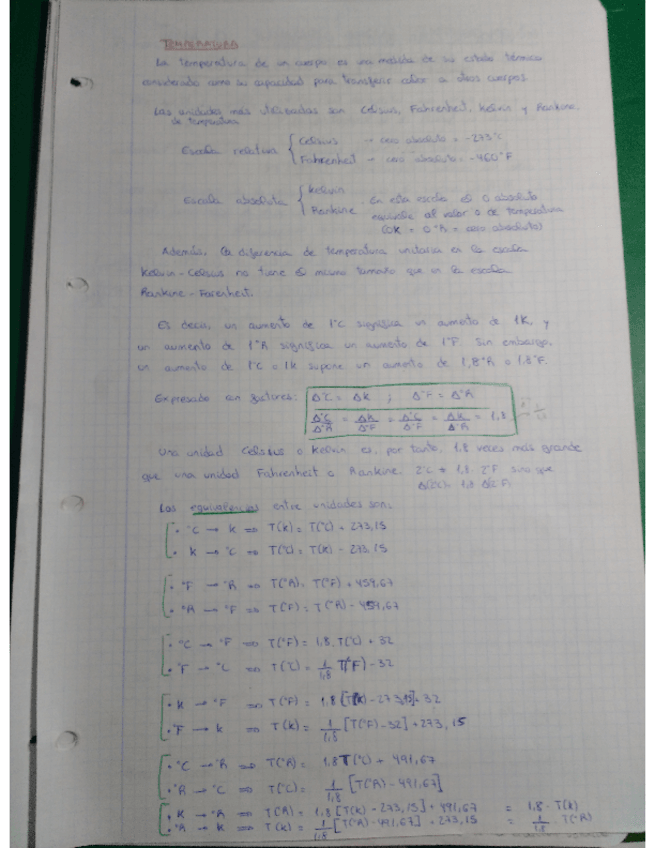 TEMPERATURA
La temperatura de un cuerpo es una medida de su estado térmico
considerado como su capacidad para transferir calor a otros cuerpos.
Las unidades más utilizadas son Celsius, Fahrenheit, Kelvin y Rankine.
de temperatura
Escala relativa { Celsius → cero absoluto = -273°C
Fahrenheit → cero absoluto = -460°F
Escala absoluta { Kelvin
Rankine
En esta escala el 0 absoluto
equivale al valor 0 de temperatura
(0K = 0°R = cero absoluto)
Además, la diferencia de temperatura unitaria en la escala
Kelvin-Celsius no tiene el mismo tamaño que en la escala
Rankine-Farenheit.
Es decir, un aumento de 1°C significa un aumento de 1K, y
un aumento de 1°R significa un aumento de 1°F. Sin embargo,
un aumento de 1°C o 1K supone un aumento de 1,8°R o 1,8°F.
Expresado en factores: Δ°C = ΔK ; Δ°F = Δ°R
Δ°C/Δ°R = ΔK/Δ°F = Δ°C/Δ°F = ΔK/Δ°R = 1,8
Una unidad Celsius o Kelvin es, por tanto, 1,8 veces más grande
que una unidad Fahrenheit o Rankine. T°C ≠ 1,8 · T°F sino que
Δ(°C) = 1,8 Δ(°F)
Las equivalencias entre unidades son:
· °C → K ⇒ T(K) = T(°C) + 273,15
· K → °C ⇒ T(°C) = T(K) - 273,15
· °F → °R ⇒ T(°R) = T(°F) + 459,67
· °R → °F ⇒ T(°F) = T(°R) - 459,67
· °C → °F ⇒ T(°F) = 1,8 · T(°C) + 32
· °F → °C ⇒ T(°C) = 1/1,8 T(°F) - 32
· K → °F ⇒ T(°F) = 1,8 [T(K) - 273,15] + 32
· °F → K ⇒ T(K) = 1/1,8 [T(°F) - 32] + 273,15
· °C → °R ⇒ T(°R) = 1,8 T(°C) + 491,67
· °R → °C ⇒ T(°C) = 1/1,8 [T(°R) - 491,67]
· K → °R ⇒ T(°R) = 1,8 [T(K) - 273,15] + 491,67 = 1,8 · T(K)
· °R → K ⇒ T(K) = 1/1,8 [T(°R) - 491,67] + 273,15 = 1/1,8 · T(°R)